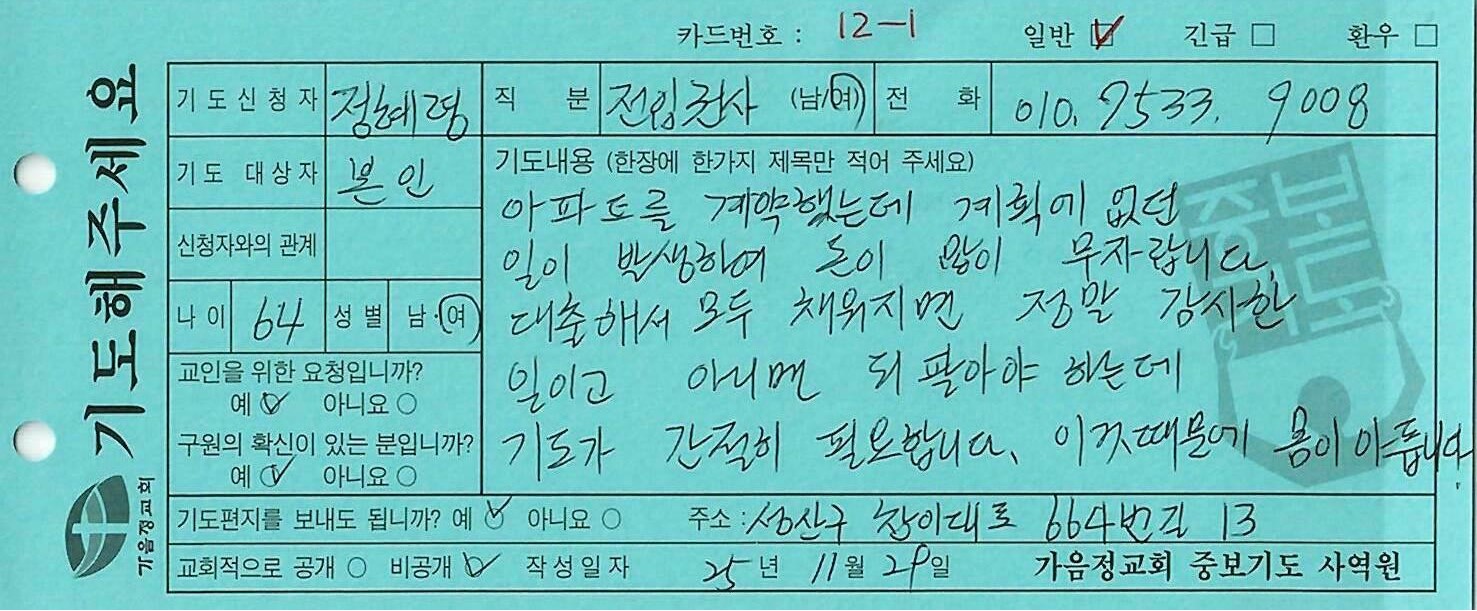 카드번호 : 12-1 일반 ☑ 긴급 □ 환우 □
기도해주세요
가음정교회
기도신청자 정혜령 직 분 전입권사 (남/여) 전 화 010. 7533. 9008
기도 대상자 본인
신청자와의 관계
나이 64 성별 남·여
교인을 위한 요청입니까?
예 ☑ 아니요 ○
구원의 확신이 있는 분입니까?
예 ☑ 아니요 ○
기도내용 (한장에 한가지 제목만 적어 주세요)
아파트를 계약했는데 계획에 없던
일이 발생하여 돈이 많이 무자랍니다.
대출해서 모두 채워지면 정말 감사한
일이고 아니면 되팔아야 하는데
기도가 간절히 필요합니다. 이것때문에 몸이 아픕니다.
중보기도
기도편지를 보내도 됩니까? 예 ☑ 아니요 ○ 주소 : 성산구 창이대로 664번길 13
교회적으로 공개 ○ 비공개 ☑ 작성일자 25년 11월 29일 가음정교회 중보기도 사역원